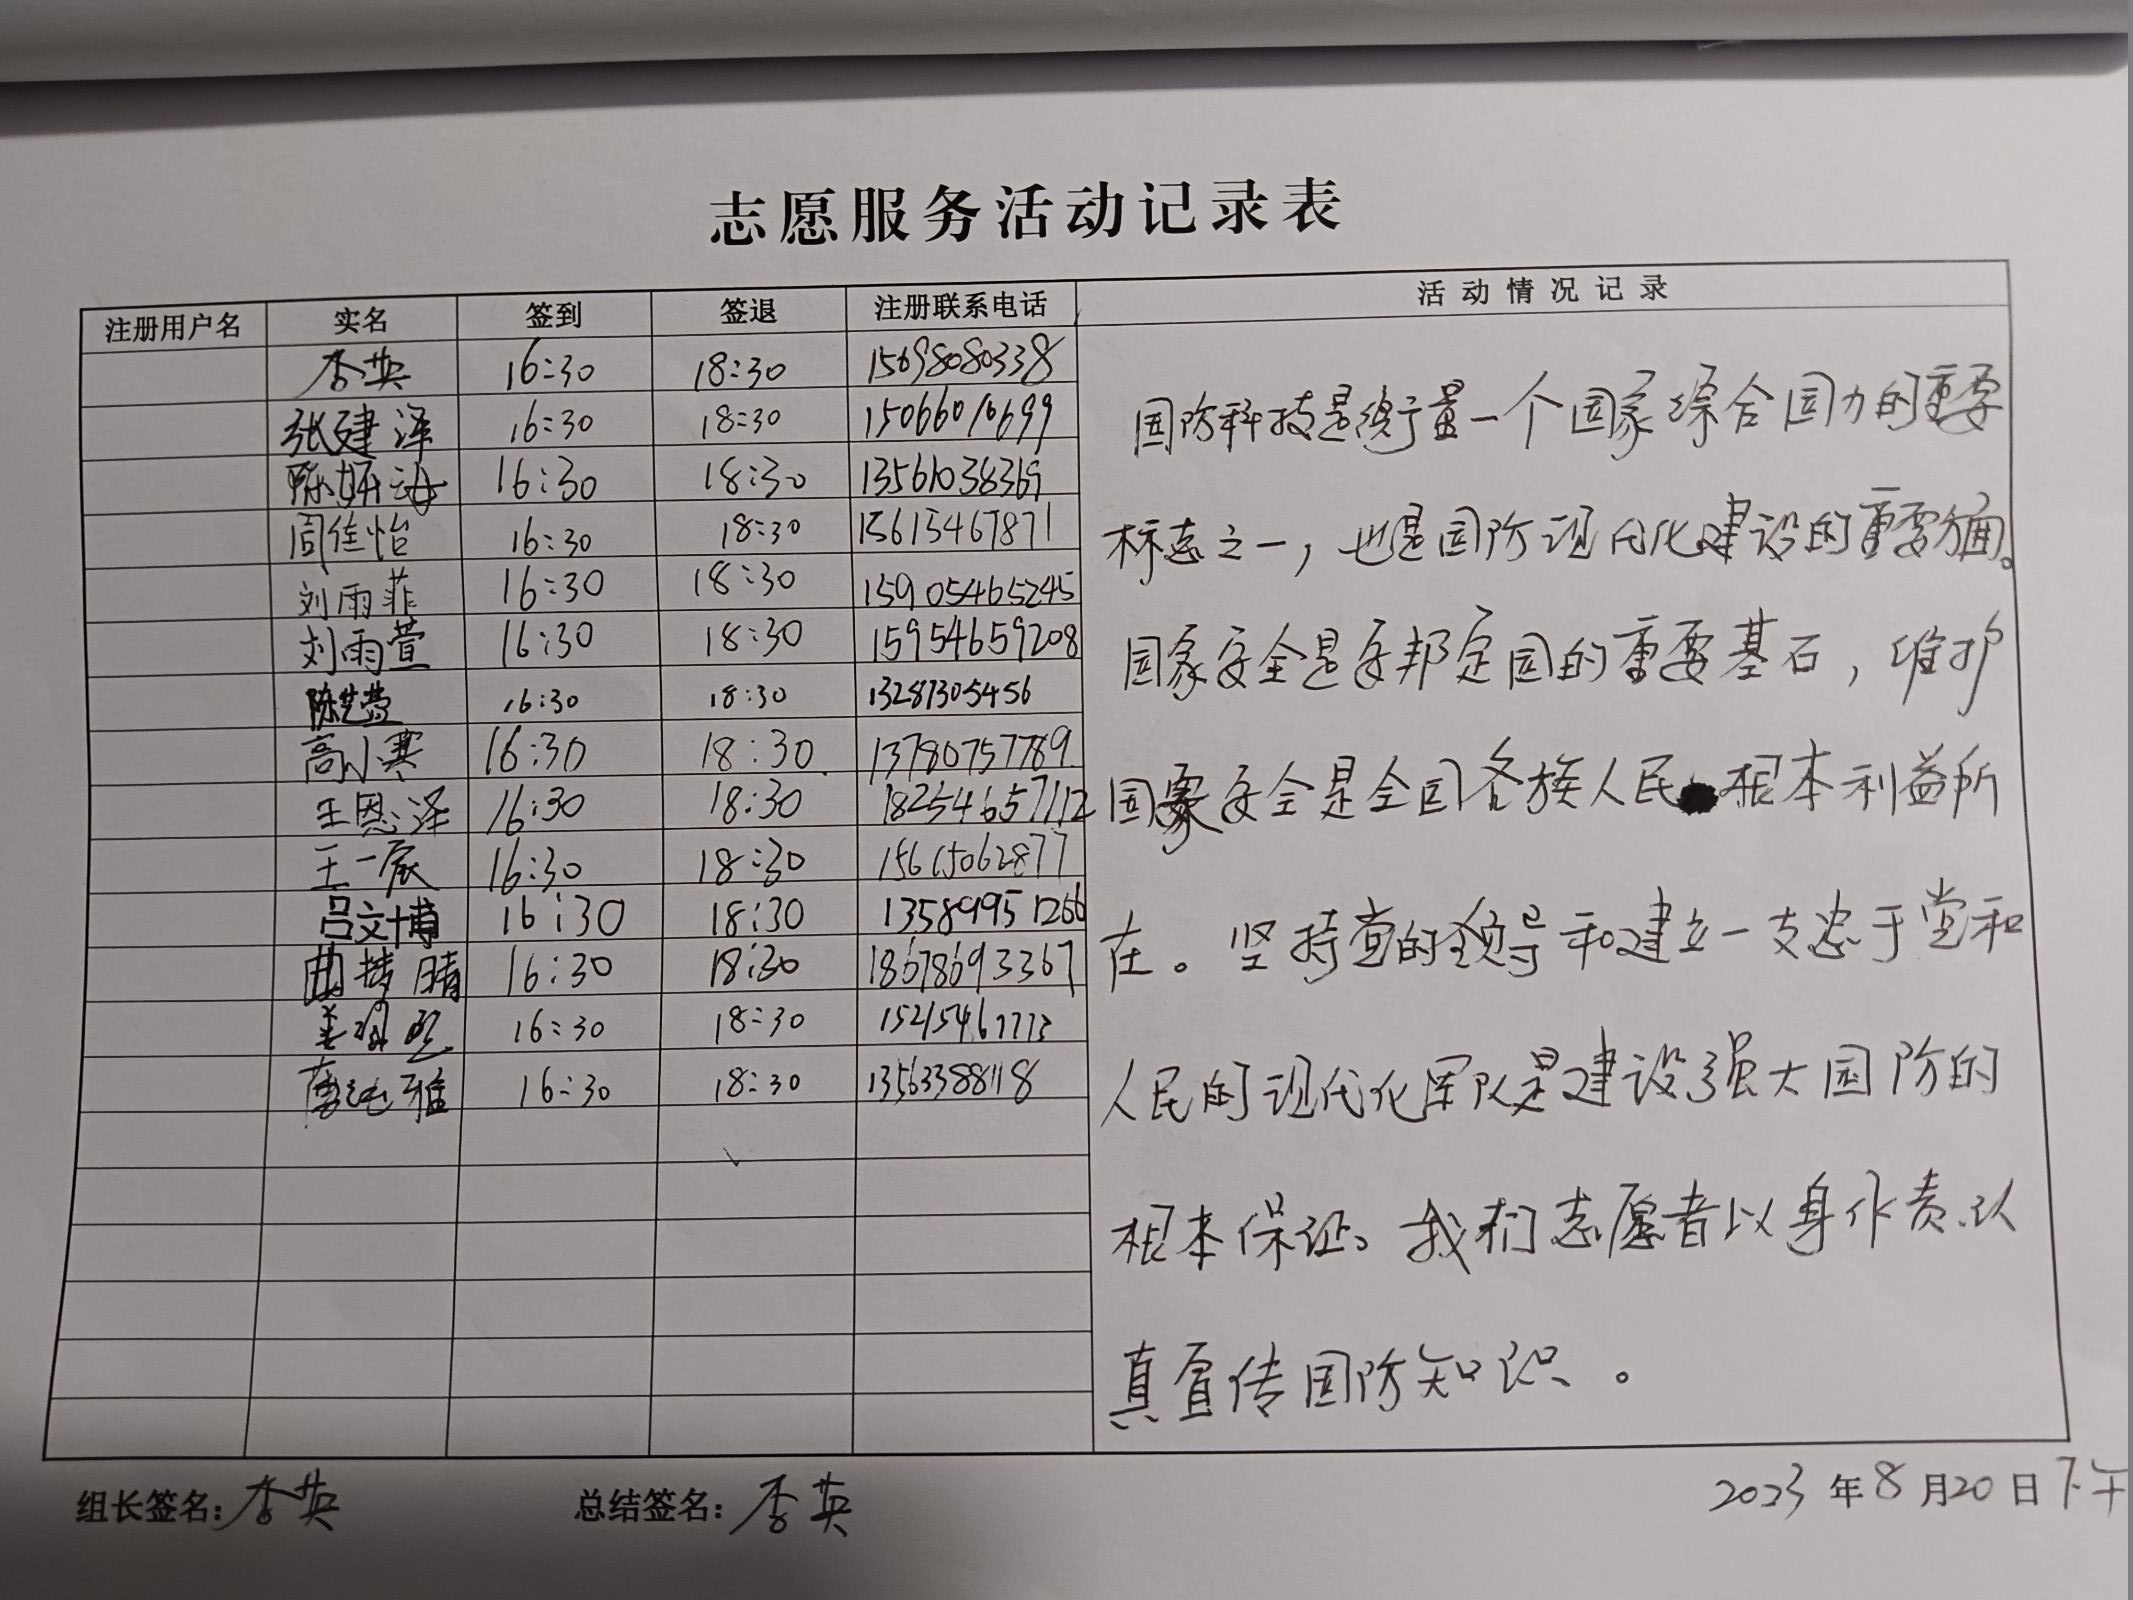 志愿服务活动记录表
注册用户名 实名 签到 签退 注册联系电话 活动情况记录
李英 16:30 18:30 15698080338
张建泽 16:30 18:30 15066010699
16:30 18:30 13561038369
周佳怡 16:30 18:30 15615467871
刘雨菲 16:30 18:30 15905465245
刘雨萱 16:30 18:30 15954659208
陈艺莹 16:30 18:30 13287305456
高小寒 16:30 18:30 13780757789
王恩泽 16:30 18:30 18254657112
王一宸 16:30 18:30 15615062877
吕文博 16:30 18:30 13589951266
曲梦晴 16:30 18:30 18678693367
16:30 18:30
16:30 18:30 13563388118
国防科技是衡量一个国家综合国力的重要
标志之一，也是国防现代化建设的重要方面。
国家安全是安邦定国的重要基石，维护
国家安全是全国各族人民根本利益所
在。坚持党的领导和建立一支忠于党和
人民的现代化军队是建设强大国防的
根本保证。我们志愿者以身作责认
真宣传国防知识。
组长签名：李英 总结签名：李英 2023年8月20日下午